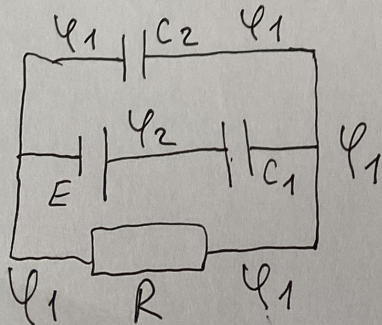 φ1 C2 φ1
φ2 φ1
E C1
φ1 R φ1